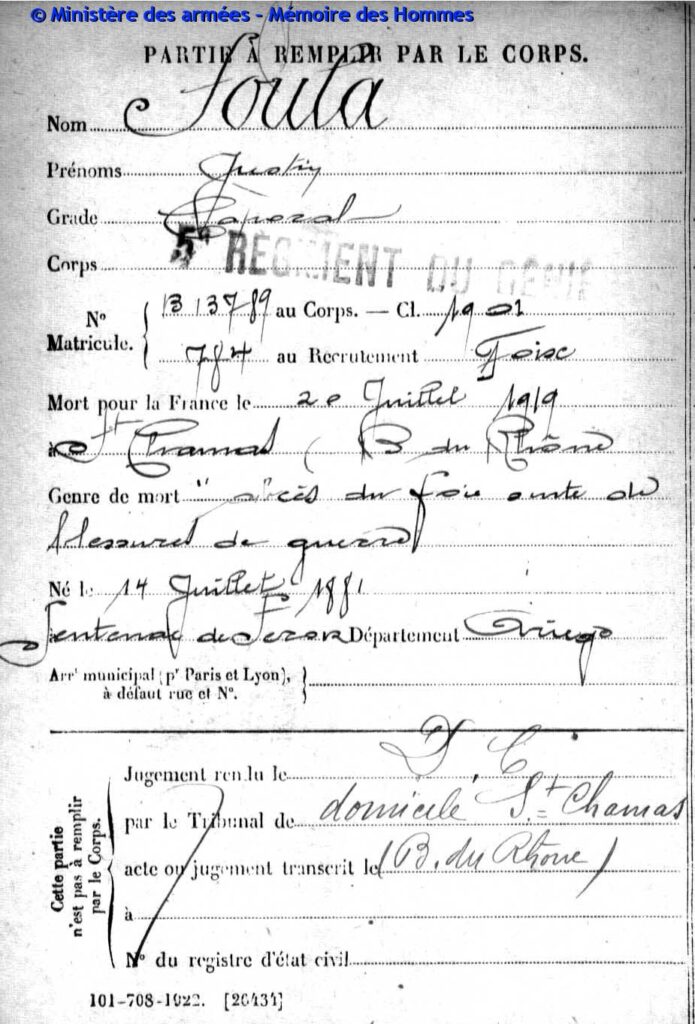 © Ministère des armées - Mémoire des Hommes
PARTIE À REMPLIR PAR LE CORPS.
Nom Soula
Prénoms Justin
Grade Caporal
Corps 5e RÉGIMENT DU GÉNIE
N° Matricule. { 13 13789 au Corps. — Cl. 1901
784 au Recrutement Foix
Mort pour la France le 20 Juillet 1919
à St Chamas (B du Rhône
Genre de mort " abcès du foie suite de
blessures de guerre
Né le 14 Juillet 1881
à Sentenac de Serou Département Ariège
Arrt municipal (pr Paris et Lyon), à défaut rue et N°.
Cette partie n'est pas à remplir par le Corps.
D. C.
Jugement rendu le
par le Tribunal de domicile St Chamas
acte ou jugement transcrit le (B. du Rhône)
à
N° du registre d'état civil
101-708-1922. [26434]